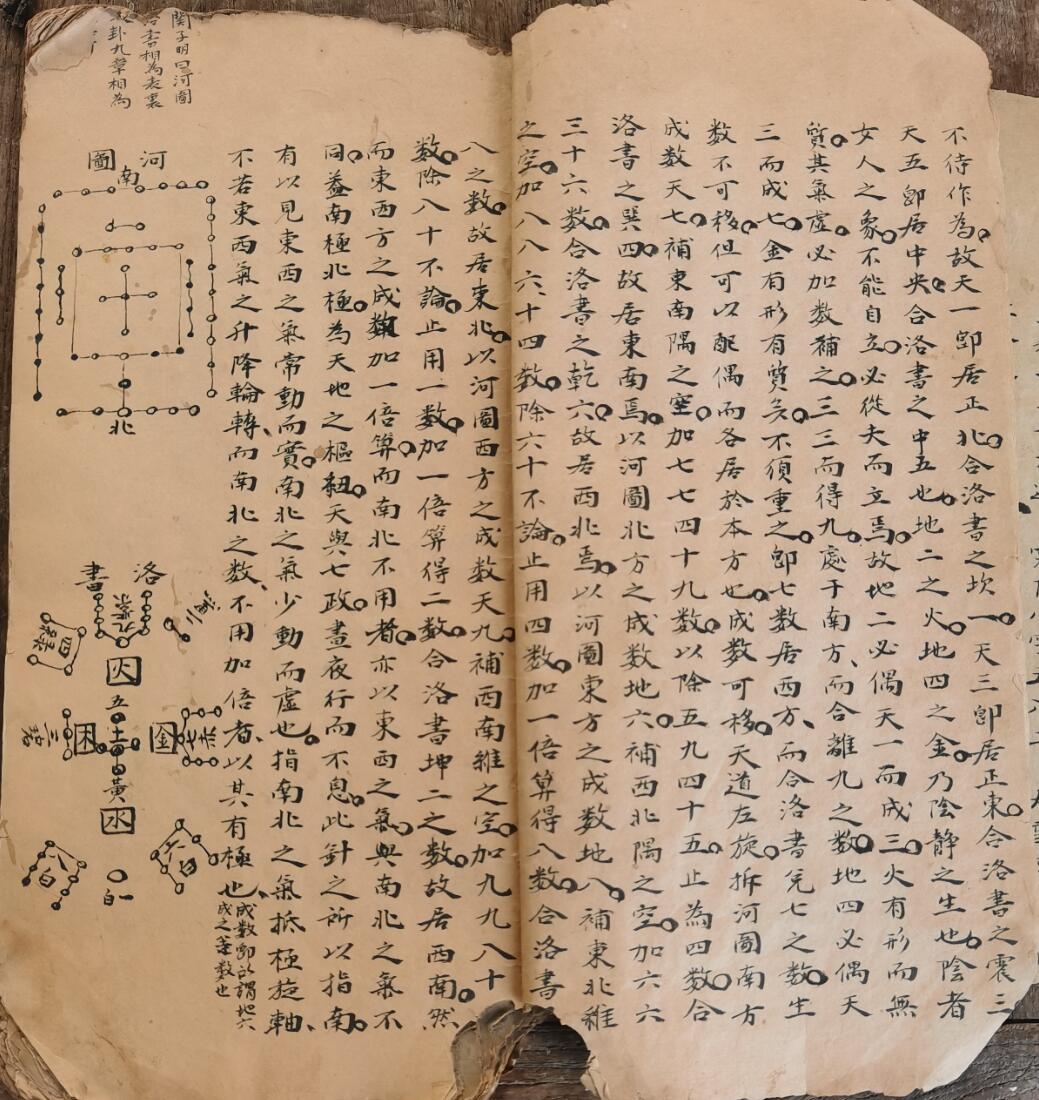 不待作為故天一即居正北合洛書之坎一天三即居正東合洛書之震三
天五即居中央合洛書之中五也地二之火地四之金乃陰靜之生也陰者
女人之象不能自立必從夫而立焉故地二必偶天一而成三火有形而無
質其氣虛必加數補之三三而得九處于南方而合離九之数地四必偶天
三而成七金有形有質矣不須重之即七數居西方而合洛書兌七之数生
数不可移但可以配偶而各居於本方也成数可移天道左旋拆河圖南方
成数天七補東南隅之空加七七四十九数以除五九四十五止為四数合
洛書之巽四故居東南焉以河圖北方之成数地六補西北隅之空加六六
三十六数合洛書之乾六故居西北焉以河圖東方之成数地八補東北維
之空加八八六十四数除六十不論止用四数加一倍算得八数合洛書
八之数故居東北以河圖西方之成数天九補西南維之空加九九八十
数除八十不論止用一数加一倍算得二数合洛書坤二之数故居西南然
而東西方之成數加一倍算而南北不用者亦以東西之氣與南北之氣不
同益南極北極為天地之樞紐天與七政晝夜行而不息此針之所以指南
有以見東西之氣常動而實南北之氣少動而虛也指南北之氣抵極旋軸
不若東西氣之升降輪轉而南北之数不用加倍者以其有極也成数即所謂地六
成之等数也
關子明曰河圖
書相為表裏
卦九章相為
河圖
南
北
洛書
九紫
四綠
火
五
三碧
木
土
金
七赤
中
黃
水
八白
六白
一白